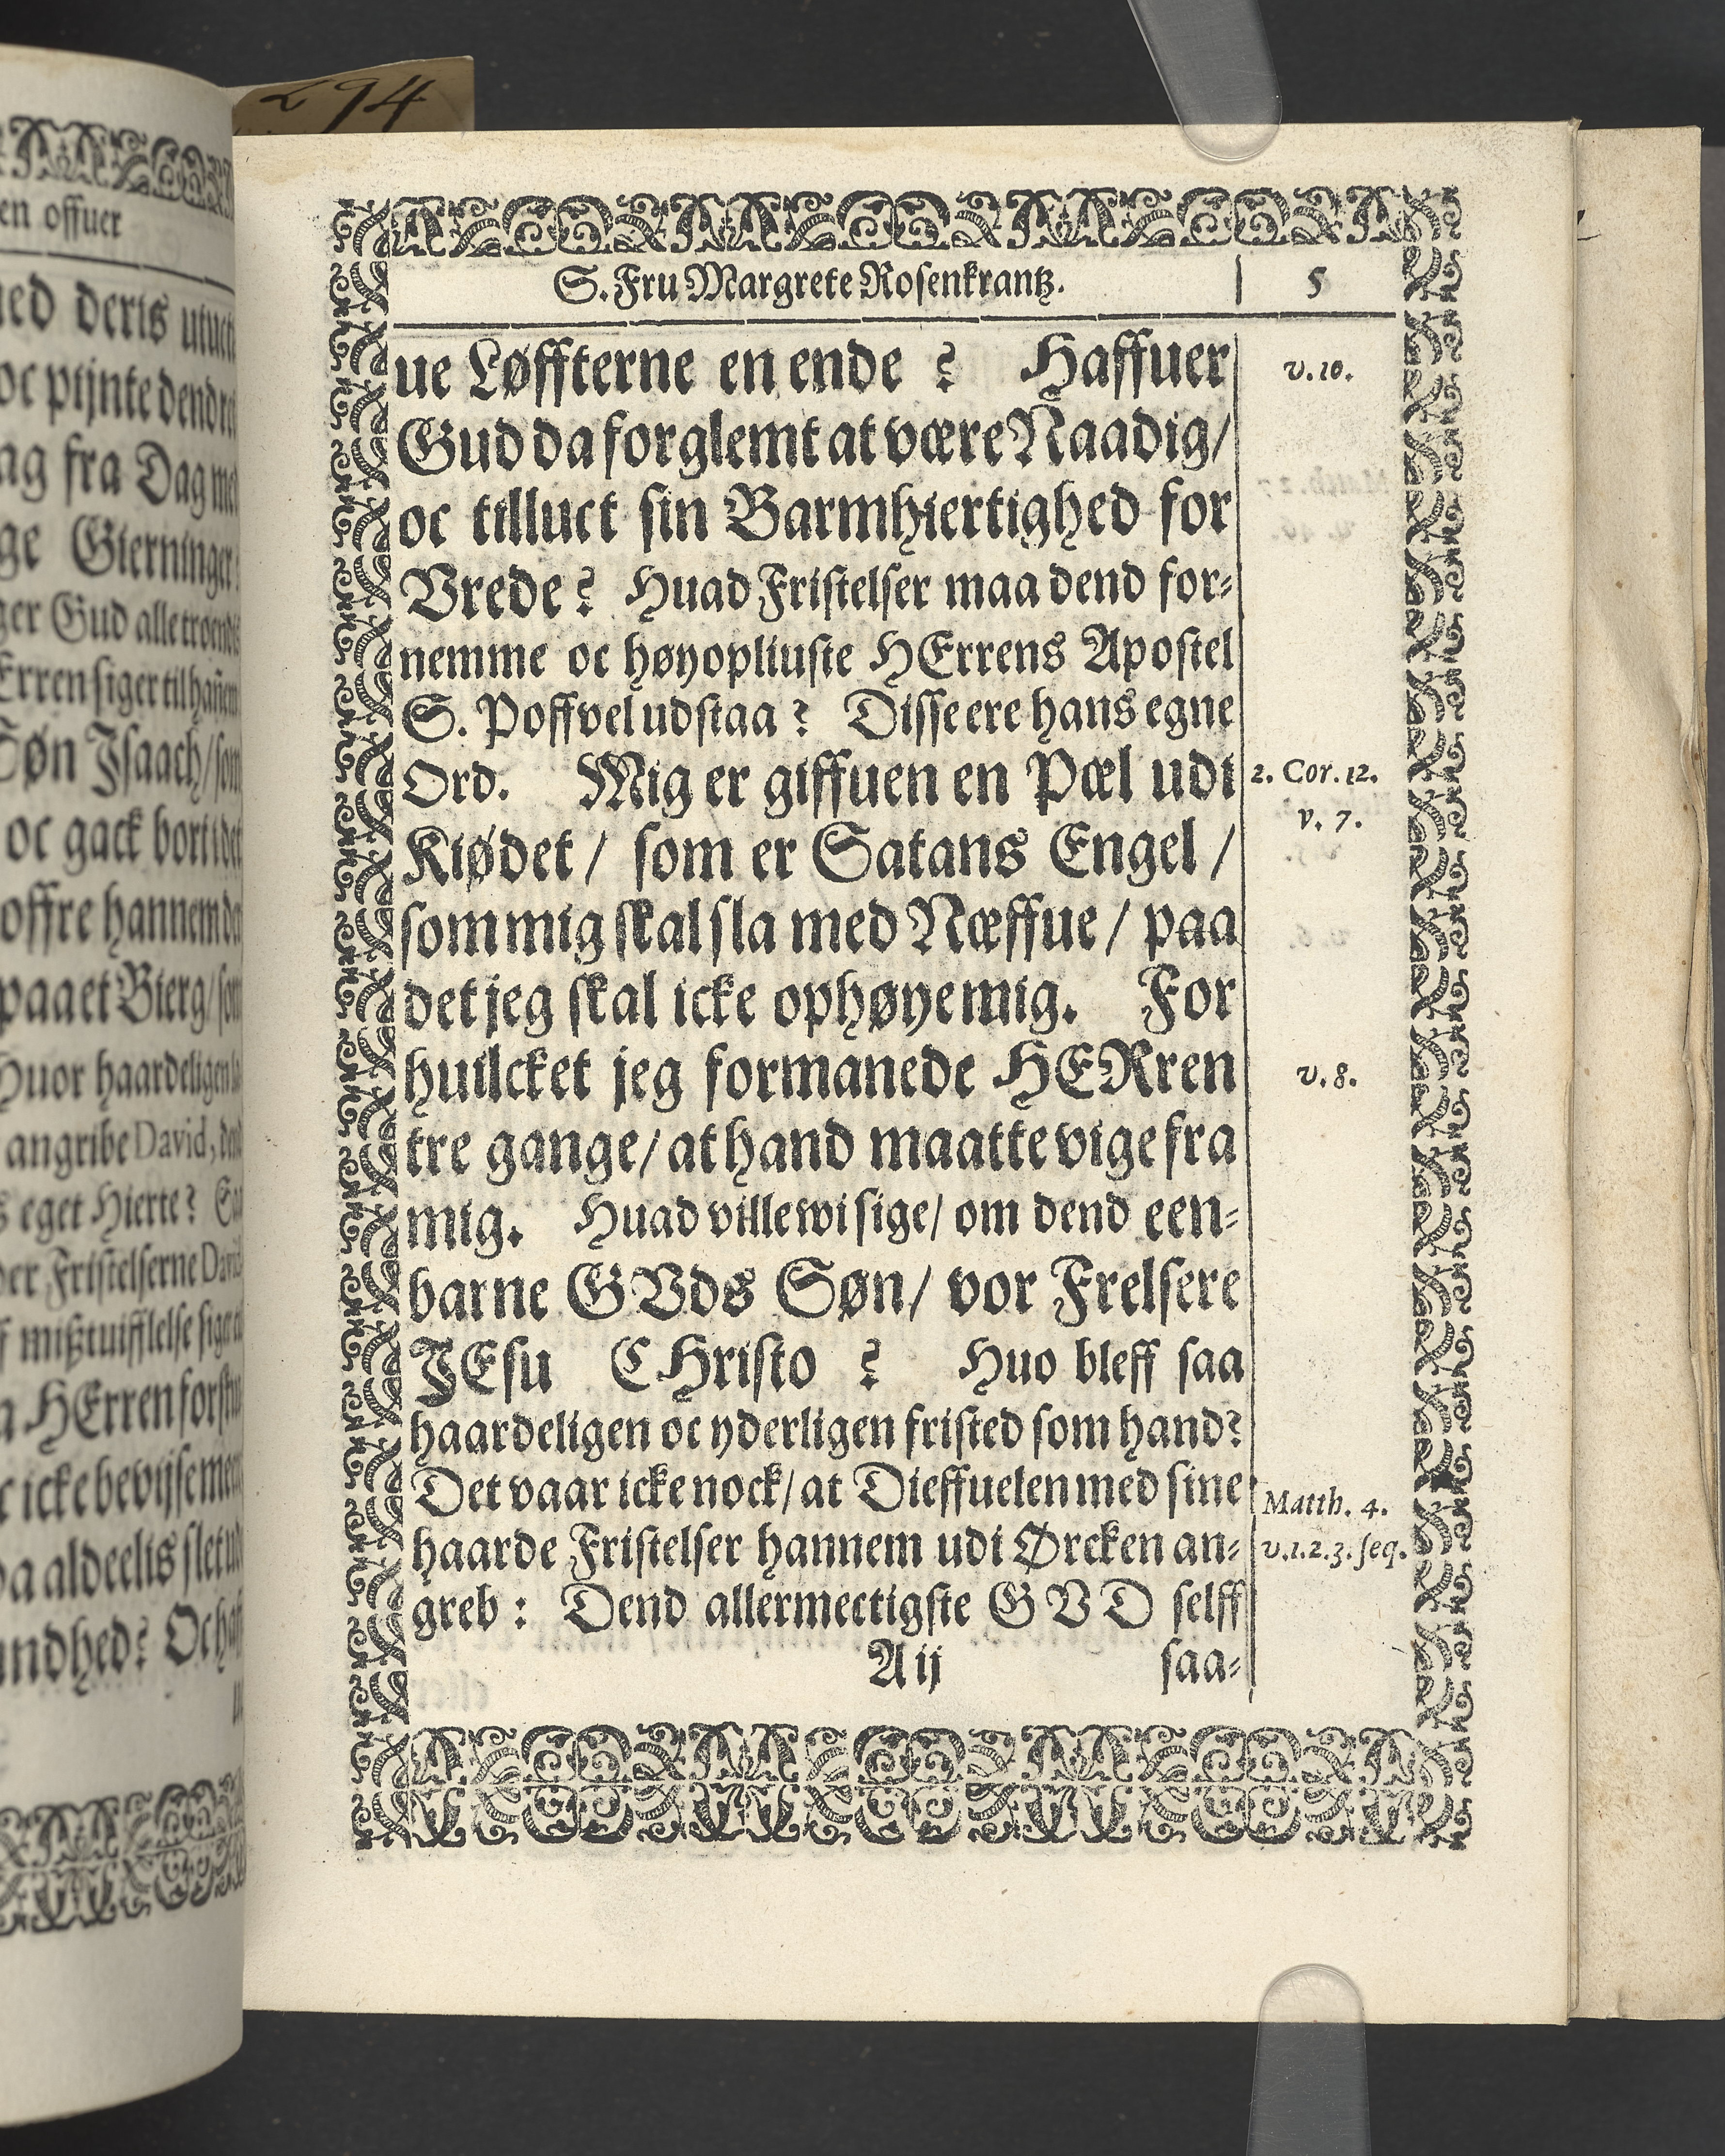 294
en offuer
ned deris
oc pijnte dend
ng fra Dag
ge Gierninger
ger Gud alle troendis
Erren siger til hañem
Søn Jsaach/ som
oc gack bort i det
offre hannem
paa et Bierg/ som
Huor haardeligen
angribe David, dend
s eget Hierte?
der Fristelserne David
ff mißtuifflelse siger
HErren
icke bevijse
da aldeelis slet
undhed? Oc
S. Fru Margrete Rosenkrantz. 5
ue Løffterne en ende? Haffuer v. 10.
Gud da forglemt at være Naadig/
oc tilluct sin Barmhiertighed for
Vrede? Huad Fristelser maa dend for-
nemme oc høyopliuste HErrens Apostel
S. Poffvel udstaa? Disse ere hans egne
Ord. Mig er giffuen en Pæl udi 2. Cor. 12.
v. 7.
Kiødet/ som er Satans Engel/
som mig skal sla med Næffue/ paa
det jeg skal icke ophøye mig. For
huilcket jeg formanede HERren v. 8.
tre gange/ at hand maatte vige fra
mig. Huad ville wi sige/ om dend een-
barne GVds Søn/ vor Frelsere
JEsu CHristo? Huo bleff saa
haardeligen oc yderligen fristed som hand?
Det vaar icke nock/ at Dieffuelen med sine Matth. 4.
haarde Fristelser hannem udi Ørcken an- v. 1. 2. 3. seq.
greb: Dend allermectigste GVD selff
A ij saa-